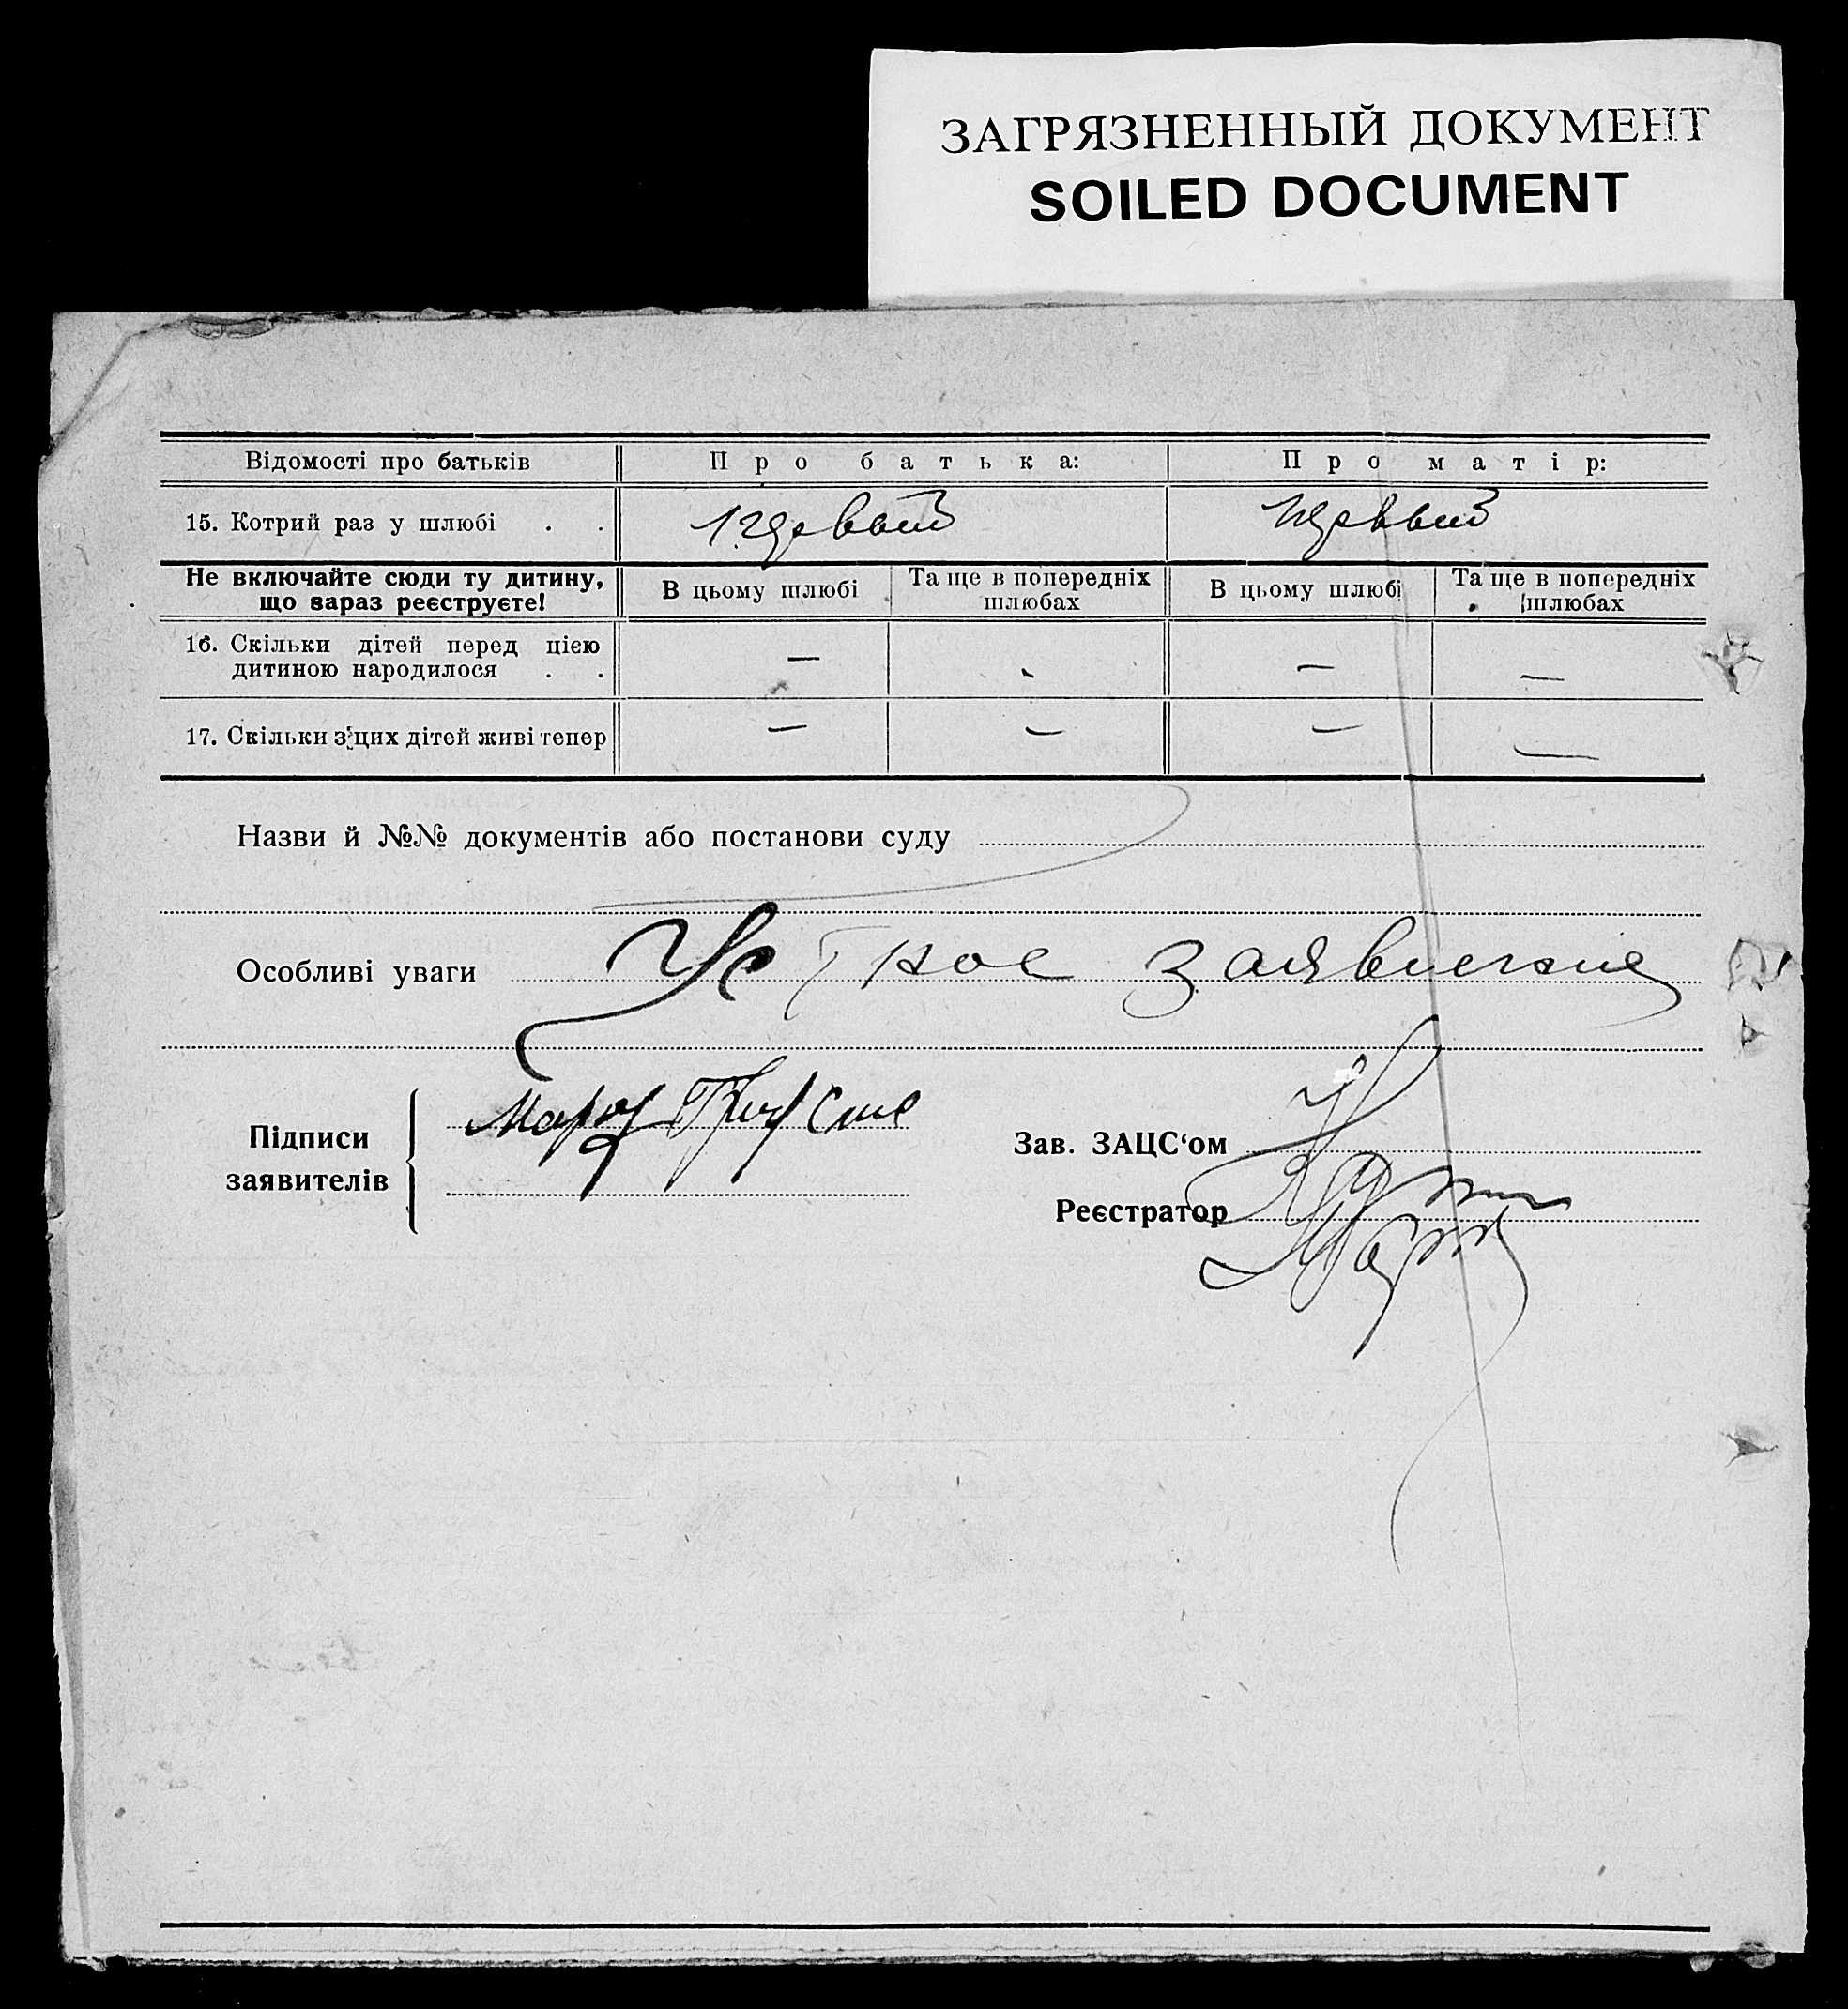 ЗАГРЯЗНЕННЫЙ ДОКУМЕНТ
SOILED DOCUMENT
Відомості про батьків Про батька: Про матір:
15. Котрий раз у шлюбі . . первый первый
Не включайте сюди ту дитину, що зараз реєструєте! В цьому шлюбі Та ще в попередніх шлюбах В цьому шлюбі Та ще в попередніх шлюбах
16. Скільки дітей перед цією
дитиною народилося . . — — —
17. Скільки з цих дітей живі тепер — — — —
Назви й №№ документів або постанови суду
Особливі уваги Устное заявление
Підписи
заявителів
Зав. ЗАЦС‘ом
Реєстратор